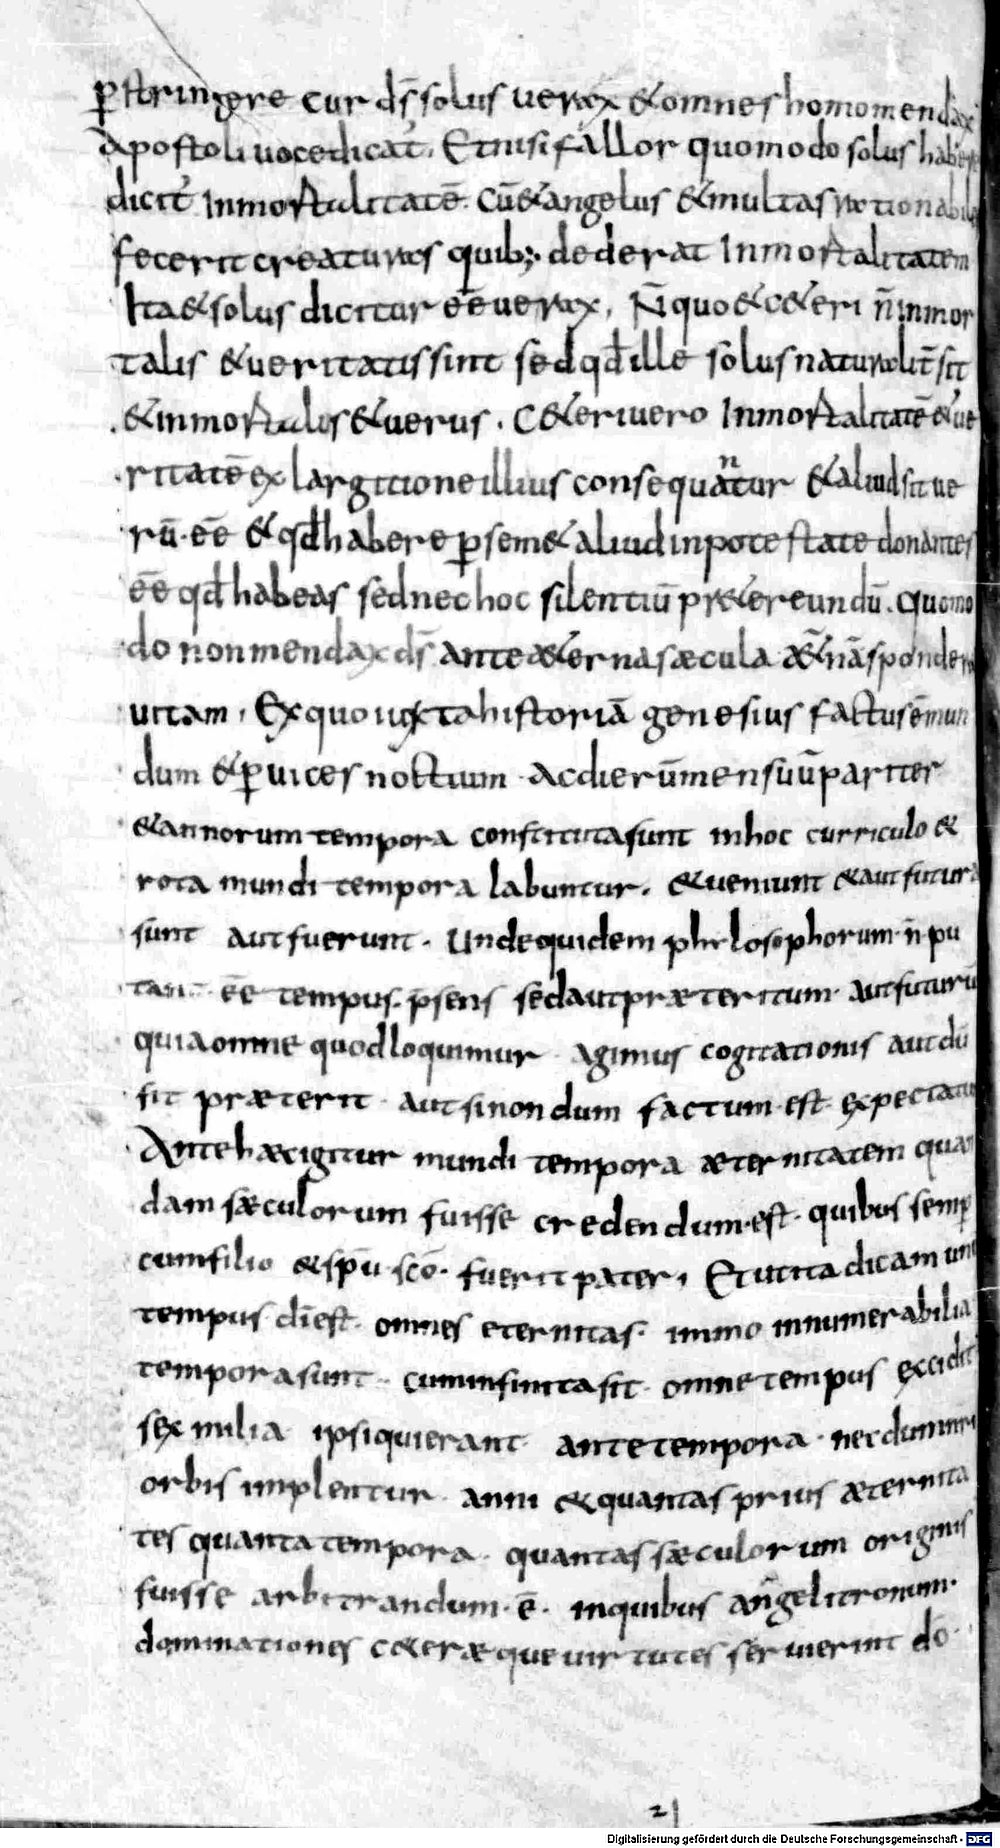 p̄stringere cur d̄s solus uerax & omnes homo mendax
Apostoli uoce dicat̄. Et nisi fallor quomodo solus habere
dicit̄ Inmortalitatē. Cū & angelus & multas rationabiles
fecerit creaturas quib; dederat Inmortalitatem
Ita & solus dicitur ēē uerax, N̄ quo & c&eri n̄ inmor
talis & ueritatis sint sed qđ ille solus naturalit̄ sit
& inmortalis & uerus. C&eri uero Inmortalitatē & ue
ritatē ex largitione illius consequantur & aliud sit ue
rū ēē & qđ habere p̄ sem& aliud in potestate donantes
ēē qđ habeas sed nec hoc silentiū pr&ereundū. Quomo
do non mendax d̄s ante a&erna sæcula a&̄nā spondere
uitam, Ex quo iuxta historiā genesius factus ē mun
dum & p̄ uices noctium Ac dierū mensuū pariter
& annorum tempora constituta sunt in hoc curriculo &
rota mundi tempora labuntur. & ueniunt & aut futura
sunt aut fuerunt. Unde quidem philosophorum n̄ pu
tant ēē tempus p̄sens sed aut præteritum aut futurū
quia omne quod loquimur agimus cogitationis aut dū
fit præterit aut si nondum factum est expectatur
Ante hæc igitur mundi tempora æternitatem quan
dam sæculorum fuisse credendum est. quibus semp̄
cum filio & sp̄u sc̄o. fuerit pater, Et ut ita dicam unū
tempus d̄i est. omnes eternitas. immo innumerabilia
tempora sunt. cum infinita sit omne tempus excidit
sex milia ipsi quierant ante tempora necdum nri
orbis implentur anni & quantas prius æternita
tes quanta tempora. quantas sæculorum originis
fuisse arbitrandum. ē. in quibus angeli tronum.
dominationes c&eræque uirtutes seruierint d̄o.
21
Digitalisierung gefördert durch die Deutsche Forschungsgemeinschaft - DFG